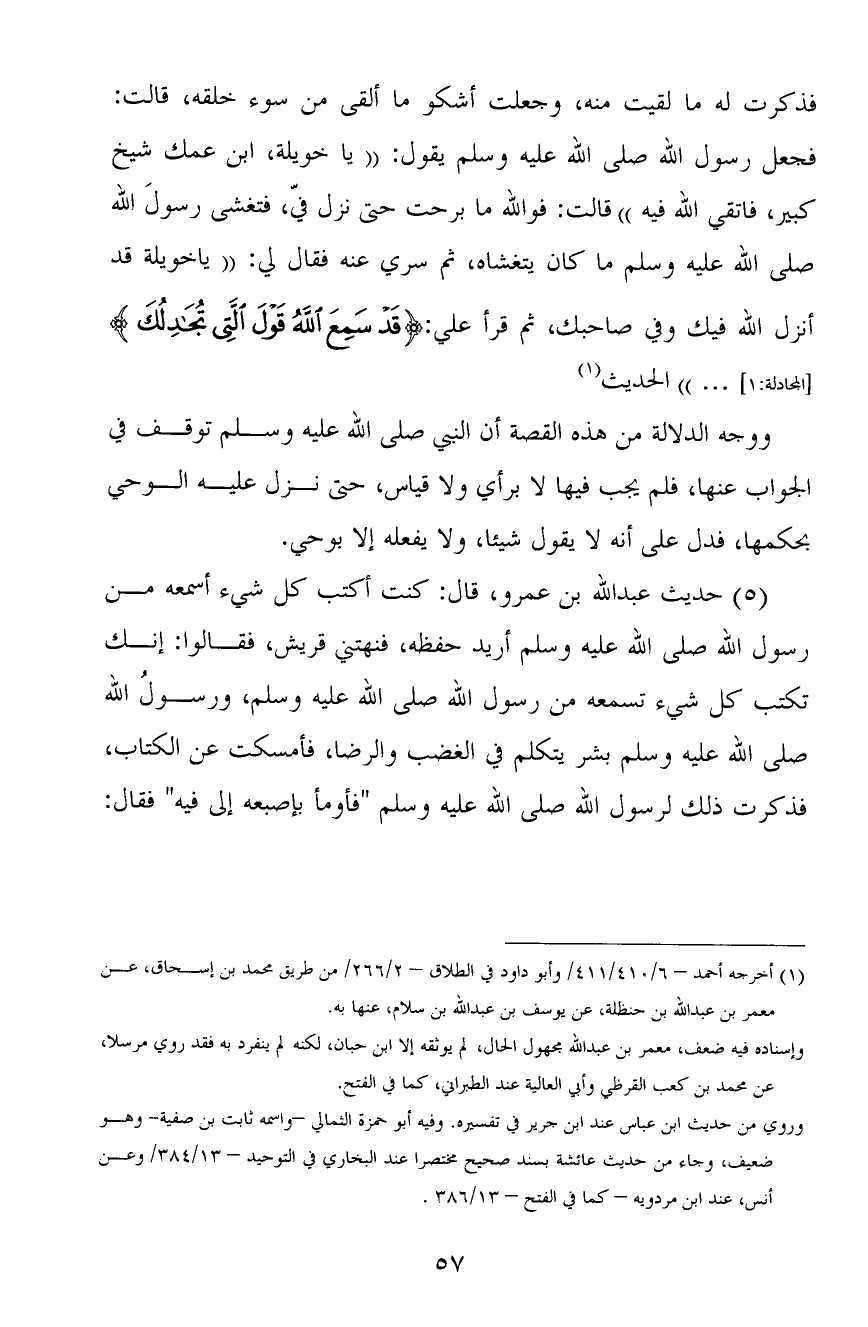 فذكرت له ما لقيت منه، وجعلت أشكو ما ألقى من سوء خلقه، قالت:
فجعل رسول الله صلى الله عليه وسلم يقول: (( يا خويلة، ابن عمك شيخ
كبير، فاتقي الله فيه )) قالت: فوالله ما برحت حتى نزل فيّ، فتغشى رسولَ الله
صلى الله عليه وسلم ما كان يتغشاه، ثم سري عنه فقال لي: (( ياخويلة قد
أنزل الله فيك وفي صاحبك، ثم قرأ علي: ﴿قَدْ سَمِعَ ٱللَّهُ قَوْلَ ٱلَّتِى تُجَٰدِلُكَ ﴾
[المجادلة:١] ... )) الحديث(١)
ووجه الدلالة من هذه القصة أن النبي صلى الله عليه وسلم توقف في
الجواب عنها، فلم يجب فيها لا برأي ولا قياس، حتى نزل عليه الوحي
بحكمها، فدل على أنه لا يقول شيئا، ولا يفعله إلا بوحي.
(٥) حديث عبدالله بن عمرو، قال: كنت أكتب كل شيء أسمعه من
رسول الله صلى الله عليه وسلم أريد حفظه، فنهتني قريش، فقالوا: إنك
تكتب كل شيء تسمعه من رسول الله صلى الله عليه وسلم، ورسولُ الله
صلى الله عليه وسلم بشر يتكلم في الغضب والرضا، فأمسكت عن الكتاب،
فذكرت ذلك لرسول الله صلى الله عليه وسلم "فأومأ بإصبعه إلى فيه" فقال:
(١) أخرجه أحمد – ٤١١/٤١٠/٦/ وأبو داود في الطلاق – ٢٦٦/٢/ من طريق محمد بن إسحاق، عن
معمر بن عبدالله بن حنظلة، عن يوسف بن عبدالله بن سلام، عنها به.
وإسناده فيه ضعف، معمر بن عبدالله مجهول الحال، لم يوثقه إلا ابن حبان، لكنه لم ينفرد به فقد روي مرسلا،
عن محمد بن كعب القرظي وأبي العالية عند الطبراني، كما في الفتح.
وروي من حديث ابن عباس عند ابن جرير في تفسيره. وفيه أبو حمزة الثمالي –واسمه ثابت بن صفية– وهو
ضعيف، وجاء من حديث عائشة بسند صحيح مختصرا عند البخاري في التوحيد – ٣٨٤/١٣/ وعن
أنس، عند ابن مردويه – كما في الفتح – ٣٨٦/١٣ .
٥٧